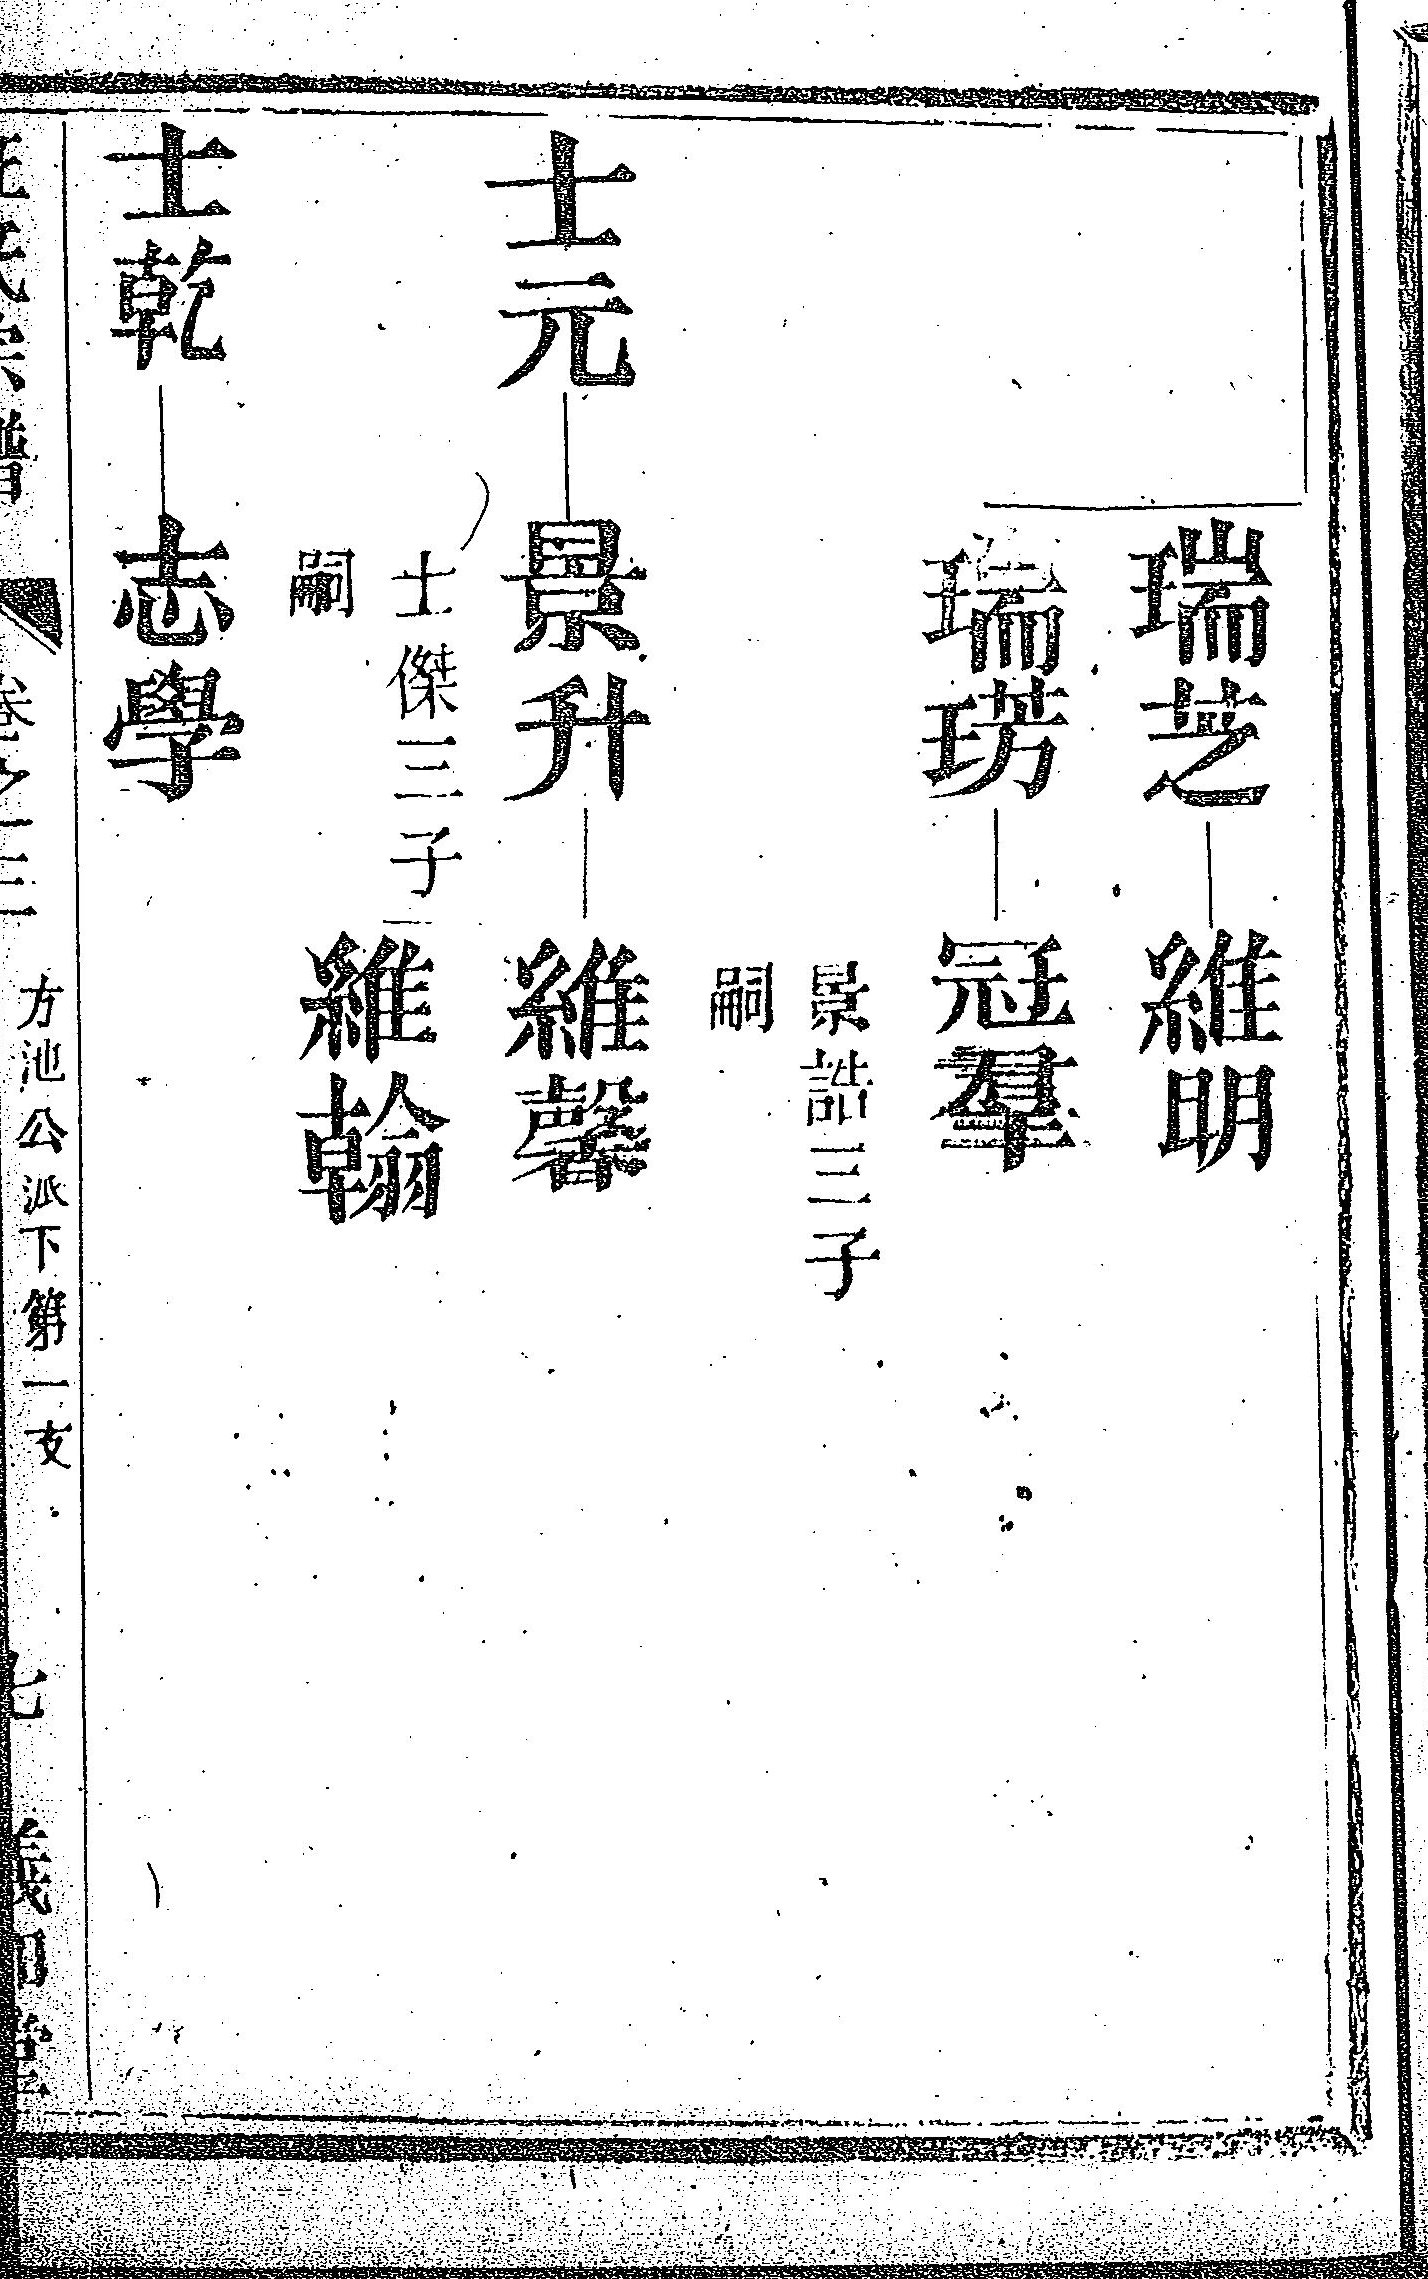 瑞芝
維明
瑞竻
冠羣
景誥三子
嗣
士元
景升
維馨
士傑三子
嗣
維翰
士乾
志學
氏宗譜
卷之三
方池公派下第一支
七